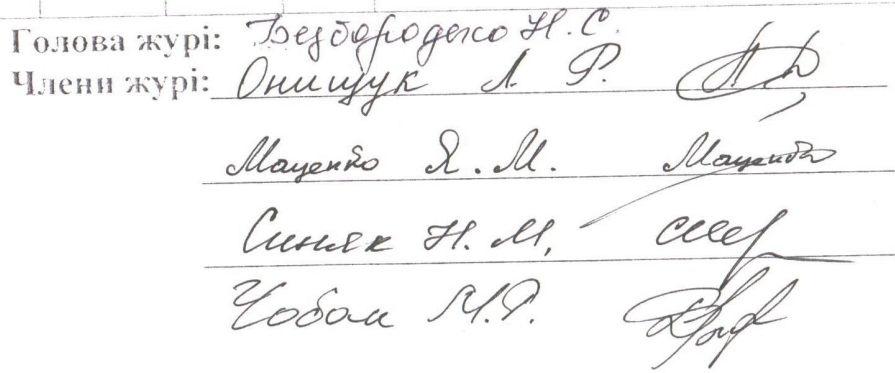 Голова журі: Безбородько Н. С.
Члени журі: Онищук Л. Р.
Маценко Я. М. Маценко
Синяк Н. М.
Чобан М. Р.